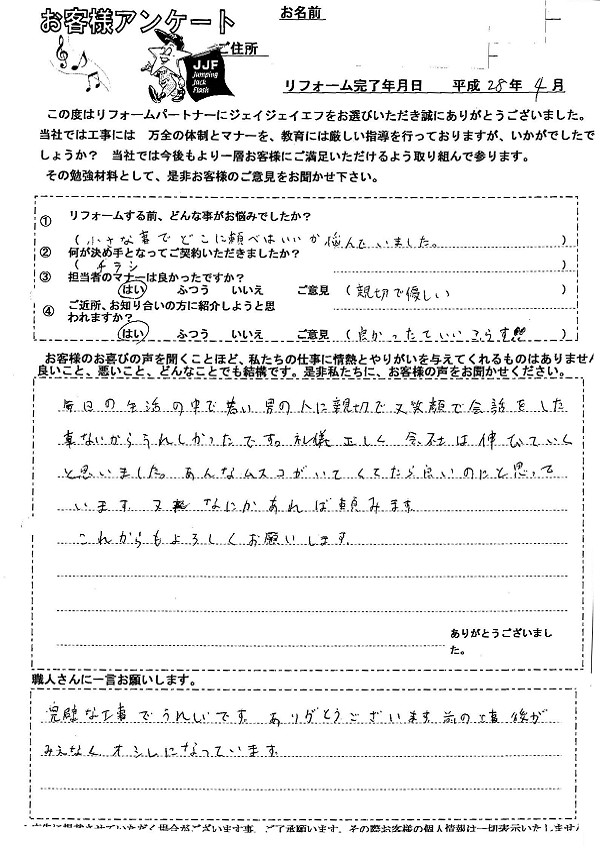 お客様アンケート
お名前
ご住所
JJF
Jumping
Jack
Flash
リフォーム完了年月日 平成 28 年 4 月
この度はリフォームパートナーにジェイジェイエフをお選びいただき誠にありがとうございました。
当社では工事には 万全の体制とマナーを、教育には厳しい指導を行っておりますが、いかがでしたで
しょうか? 当社では今後もより一層お客様にご満足いただけるよう取り組んで参ります。
その勉強材料として、是非お客様のご意見をお聞かせ下さい。
① リフォームする前、どんな事がお悩みでしたか?
(小さな事でどこに頼べはいいか悩んでいました。)
② 何が決め手となってご契約いただきましたか?
(チラシ)
③ 担当者のマナーは良かったですか?
はい ふつう いいえ ご意見 (親切で優しい)
④ ご近所、お知り合いの方に紹介しようと思
われますか?
はい ふつう いいえ ご意見 (良かったていいふらす!!!)
お客様のお喜びの声を聞くことほど、私たちの仕事に情熱とやりがいを与えてくれるものはありません
良いこと、悪いこと、どんなことでも結構です。是非私たちに、お客様の声をお聞かせください。
毎日の生活の中で若い男の人に親切で又笑顔で会話をした
事ないからうれしかったです。礼儀正しく会社は伸びていく
と思いました。あんなムスコがいてくてたら良いのにと思って
います 又 なにかあれば頼みます
これからもよろしくお願いします
ありがとうございまし
た。
職人さんに一言お願いします。
完璧な工事でうれしいです ありがとうございます 前の工事後が
みえなく オシレになっています
広告に掲載させていただく場合がございます事、ご了承願います。その際お客様の個人情報は一切表示いたしません